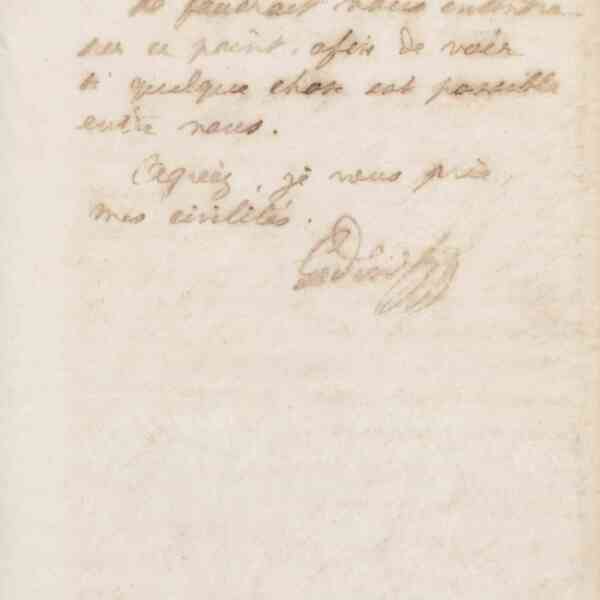 Il faudrait nous entendre
sur ce point, afin de voir
si quelque chose est possible
entre nous.
Agréez, je vous prie,
mes civilités.